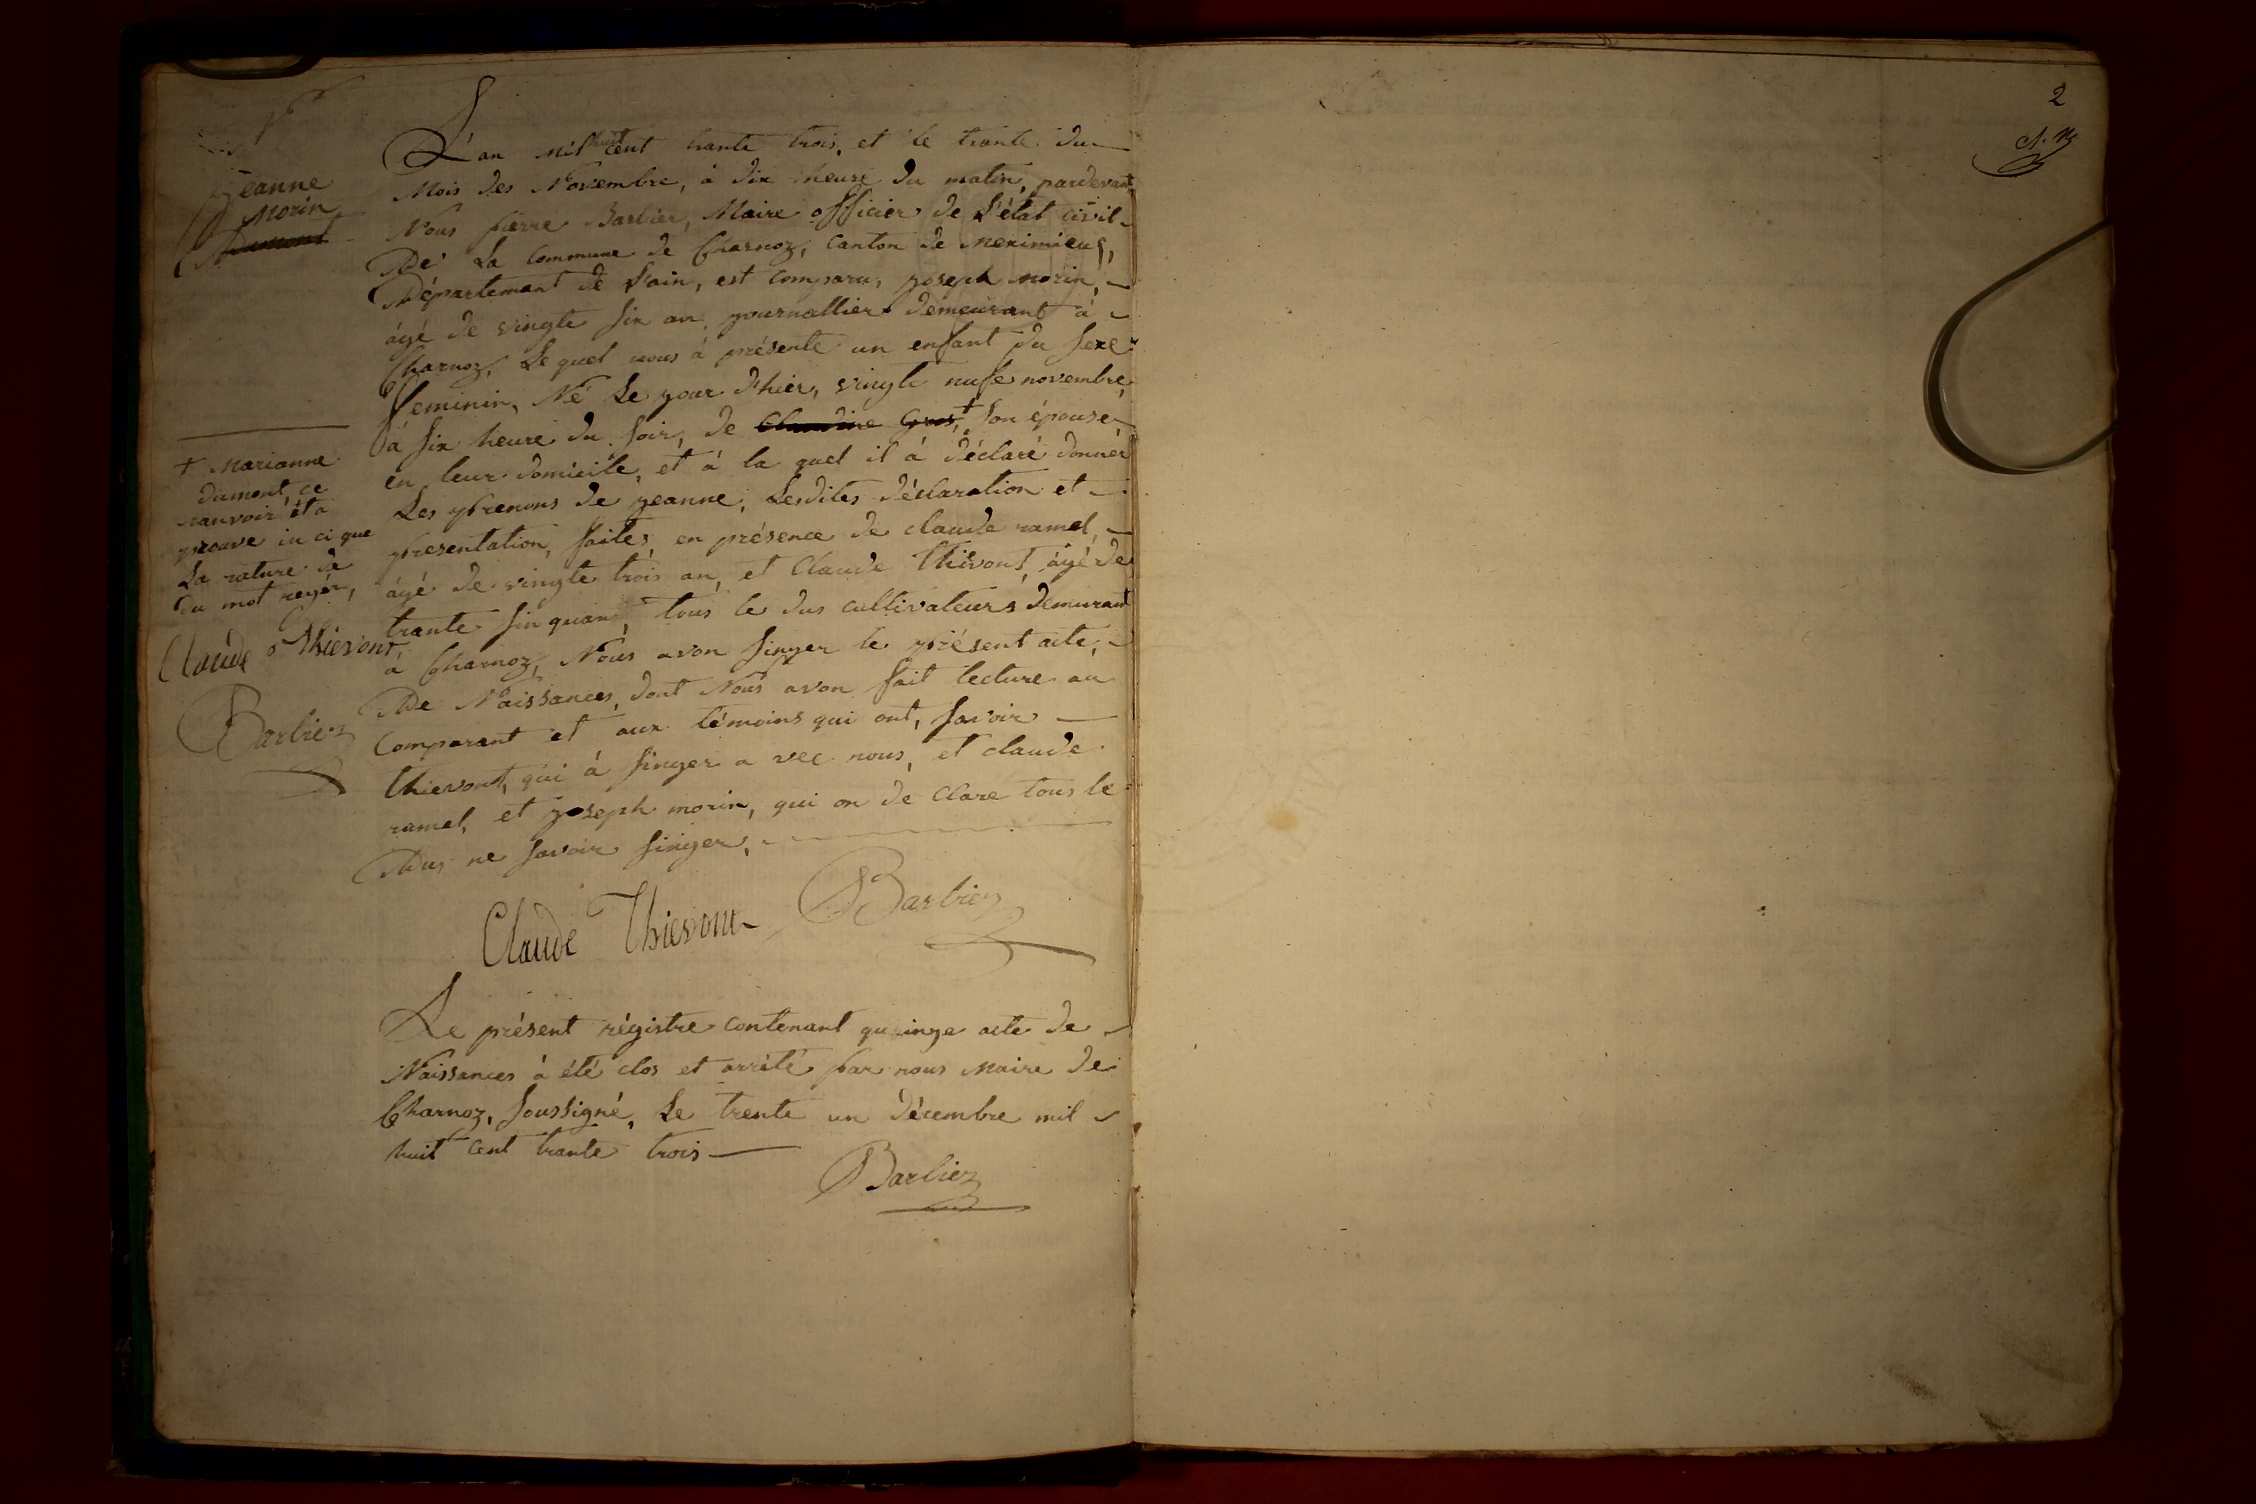 Jeanne
Morin
Dumont
L'an mil huit cent trante trois, et le trante du
Mois des Novembre, à dix heure du matin, pardevant
Nous pierre Barbier, Maire officier de L'état civil
De La Commune de Charnoz, Canton de Meximieus,
Département de L'ain, est comparu, joseph morin,
âgé de vingte six an, journallier demeurant à
Charnoz, Le quel nous à présente un enfant du sexe
feminin, Né Le jour d'hier, vingte nufe novembre,
à six heure du soir, de Claudine Gros, + son épouse
en leur domicile, et à la quel il à déclaré donnér
Les prenons de jeanne, Lesdites déclaration et
presentation, faites, en présence de claude ramel,
âgé de vingte trois an, et Claude thievont, âgé de
trante sinquan, tous le dus cultivateurs demurant
a Charnoz, Nous avon singer le présent acte,
De Naissances, dont Nous avon fait lecture au
Comparant et aux témoins qui ont, savoir
thievont, qui à singer a vec nous, et claude
ramel, et joseph morin, qui on de clare tous le
Dus ne savoir singer,
+ Marianne
dumont, ce
ranvoir ét a
prouve in ci que
La rature de
du mot reyér,
Claude Thievont
Barbier
Claude Thievont
Barbier
Le présent régistre contenant quinze acte de
Naissances à été clos et arrété par nous maire de
Charnoz, soussigné, Le trente un décembre mil
huit cent trante trois
Barbier
2